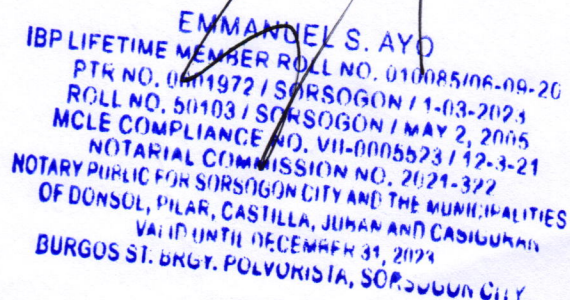 EMMANUEL S. AYO
IBP LIFETIME MEMBER ROLL NO. 010085/06-09-20
PTR NO. 0001972 / SORSOGON / 1-03-2023
ROLL NO. 50103 / SORSOGON / MAY 2, 2005
MCLE COMPLIANCE NO. VII-0005523 / 12-3-21
NOTARIAL COMMISSION NO. 2021-322
NOTARY PUBLIC FOR SORSOGON CITY AND THE MUNICIPALITIES
OF DONSOL, PILAR, CASTILLA, JUBAN AND CASIGURAN
VALID UNTIL DECEMBER 31, 2023
BURGOS ST. BRGY. POLVORISTA, SORSOGON CITY